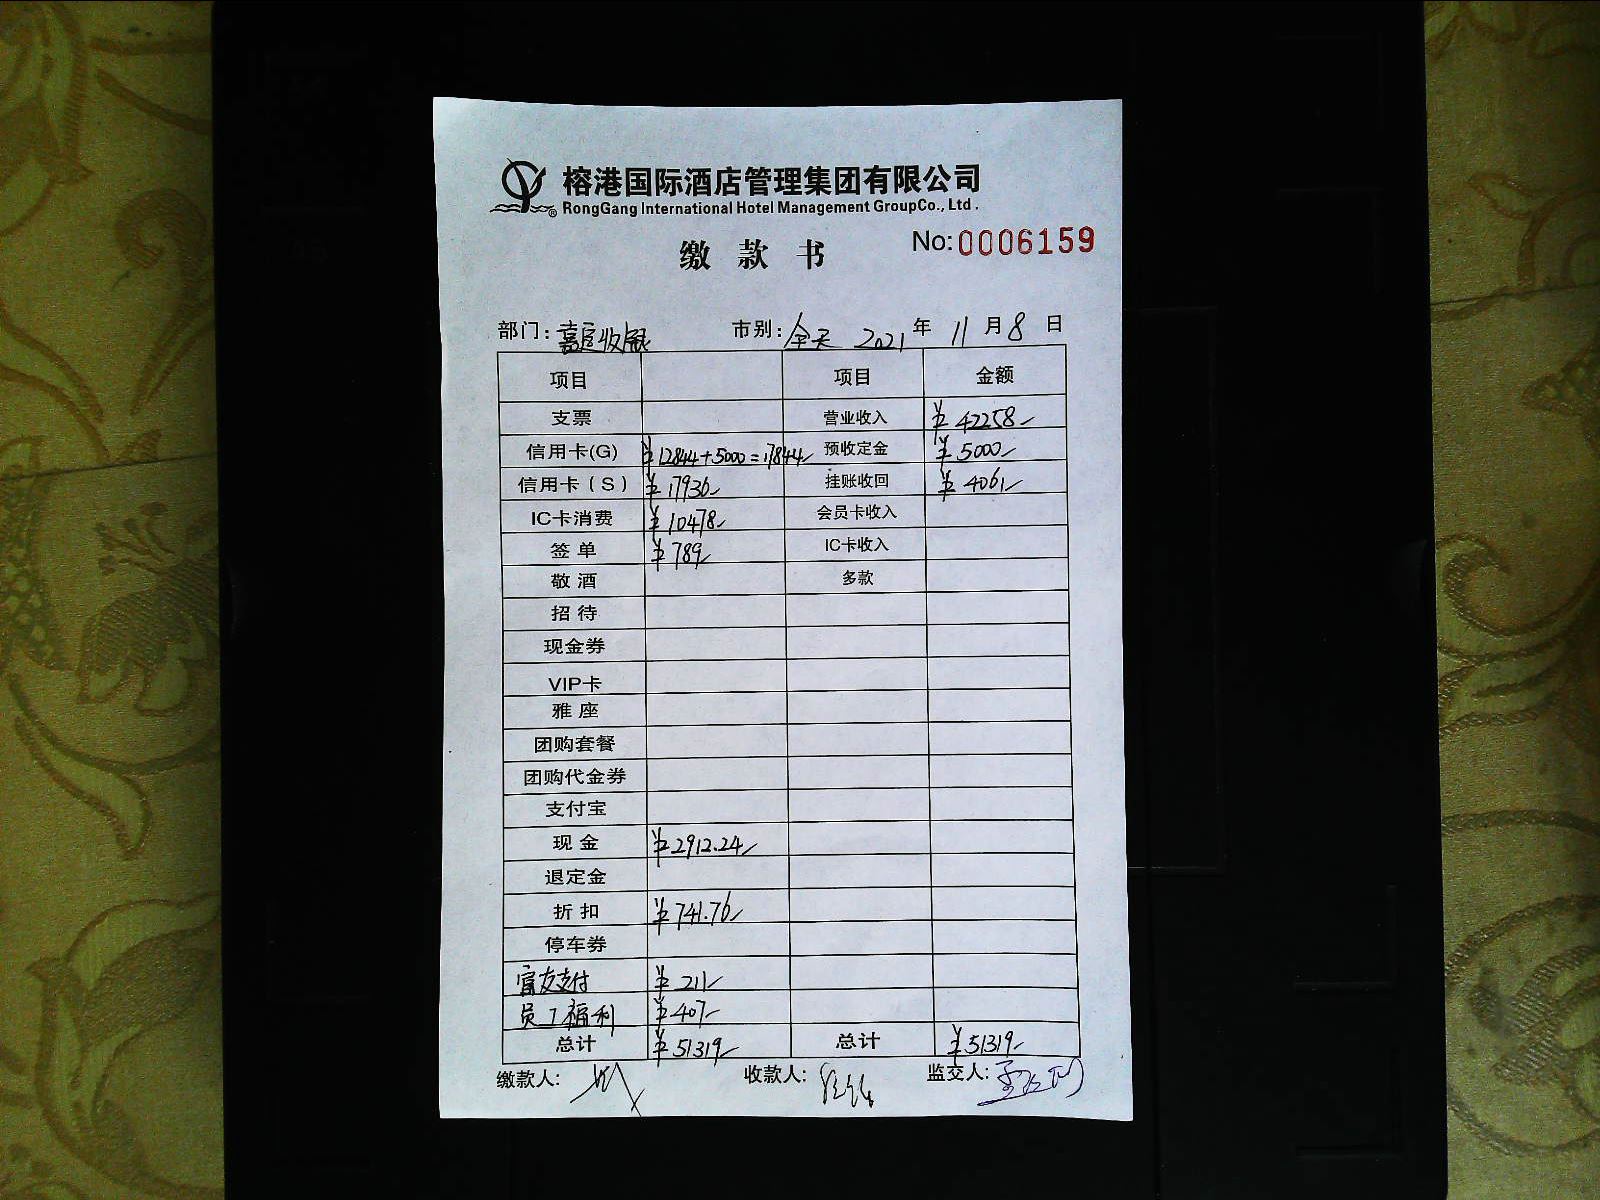 榕港国际酒店管理集团有限公司
RongGang International Hotel Management GroupCo., Ltd.
缴 款 书
No:0006159
部门: 嘉宴收银 市别: 全天 2021 年 11 月 8 日
项目 项目 金额
支票 营业收入 ¥42258
信用卡(G) ¥12844+5000=17844 预收定金 ¥5000
信用卡(S) ¥17936 挂账收回 ¥4061
IC卡消费 ¥10478 会员卡收入
签 单 ¥789 IC卡收入
敬 酒 多款
招 待
现金券
VIP卡
雅 座
团购套餐
团购代金券
支付宝
现 金 ¥2912.24
退定金
折 扣 ¥741.76
停车券
富友支付 ¥211
员工福利 ¥407
总计 ¥51319 总计 ¥51319
缴款人: 收款人: 监交人: